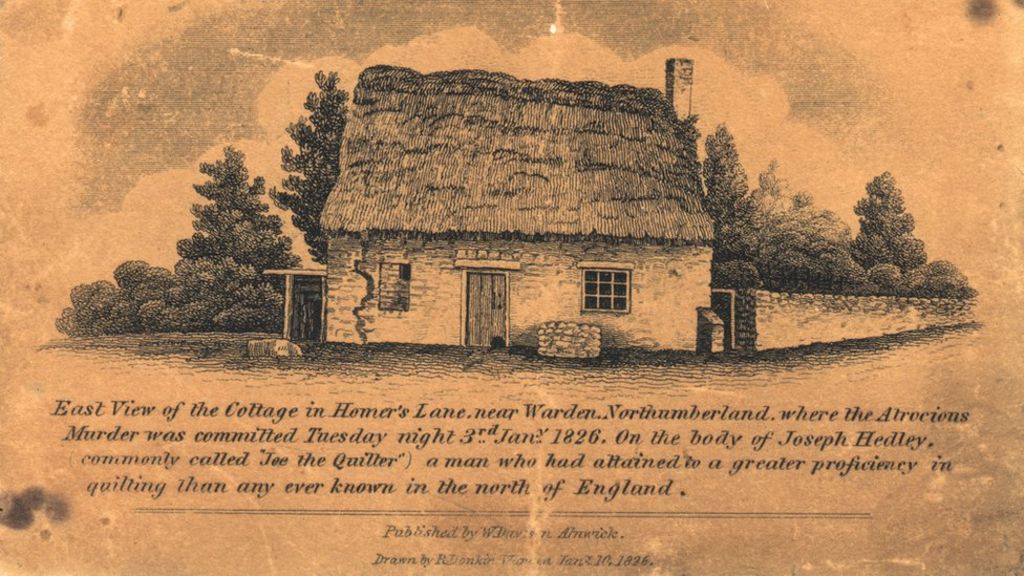 East View of the Cottage in Homer's Lane, near Warden, Northumberland, where the Atrocious
Murder was committed Tuesday night 3rd Jany 1826. On the body of Joseph Hedley,
(commonly called "Joe the Quilter") a man who had attained to a greater proficiency in
quilting than any ever known in the north of England.
Published by W. Davison Alnwick.
Drawn by R. Donkin Warden Jany 10, 1826.